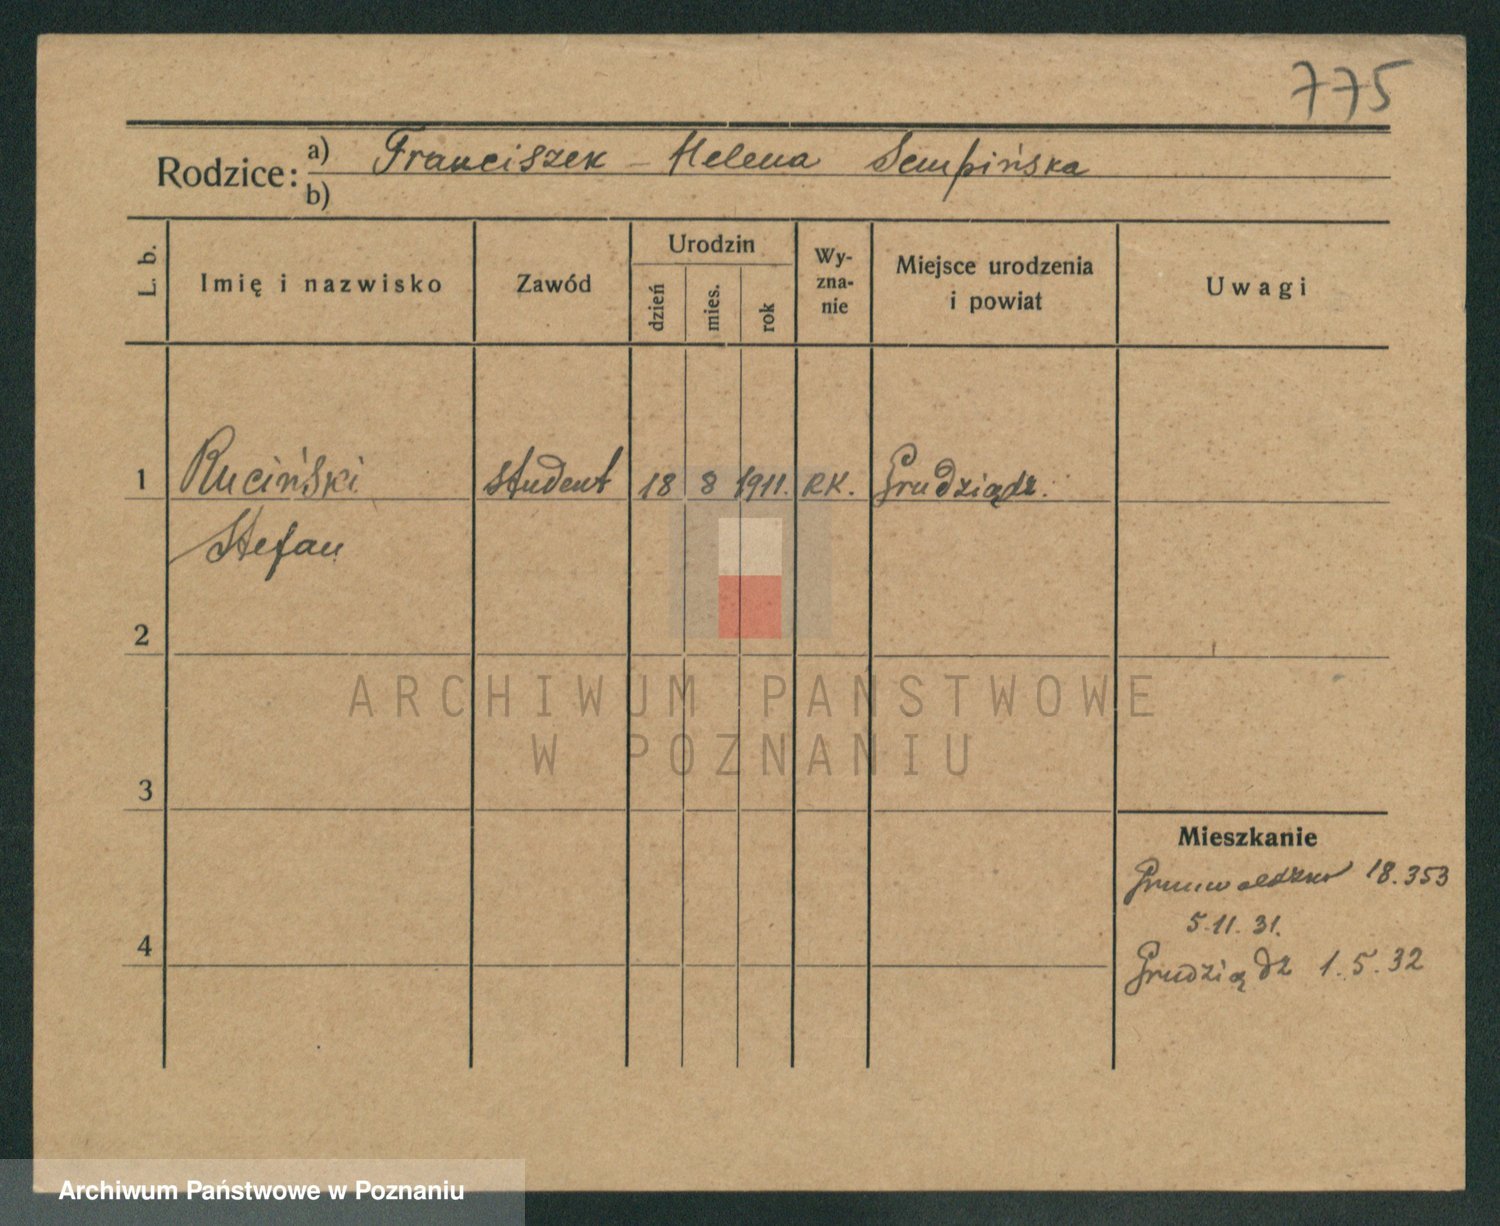 775
Rodzice: a) Franciszek – Helena Sempińska
b)
L. b.
Imię i nazwisko
Zawód
Urodzin
dzień
mies.
rok
Wy-
zna-
nie
Miejsce urodzenia
i powiat
Uwagi
1 Ruciński student 18 8 1911. RK. Grudziądz.
Stefan
2
3
4
Mieszkanie
18.353
5.11.31.
Grudziądz 1.5.32
ARCHIWUM PAŃSTWOWE
W POZNANIU
Archiwum Państwowe w Poznaniu